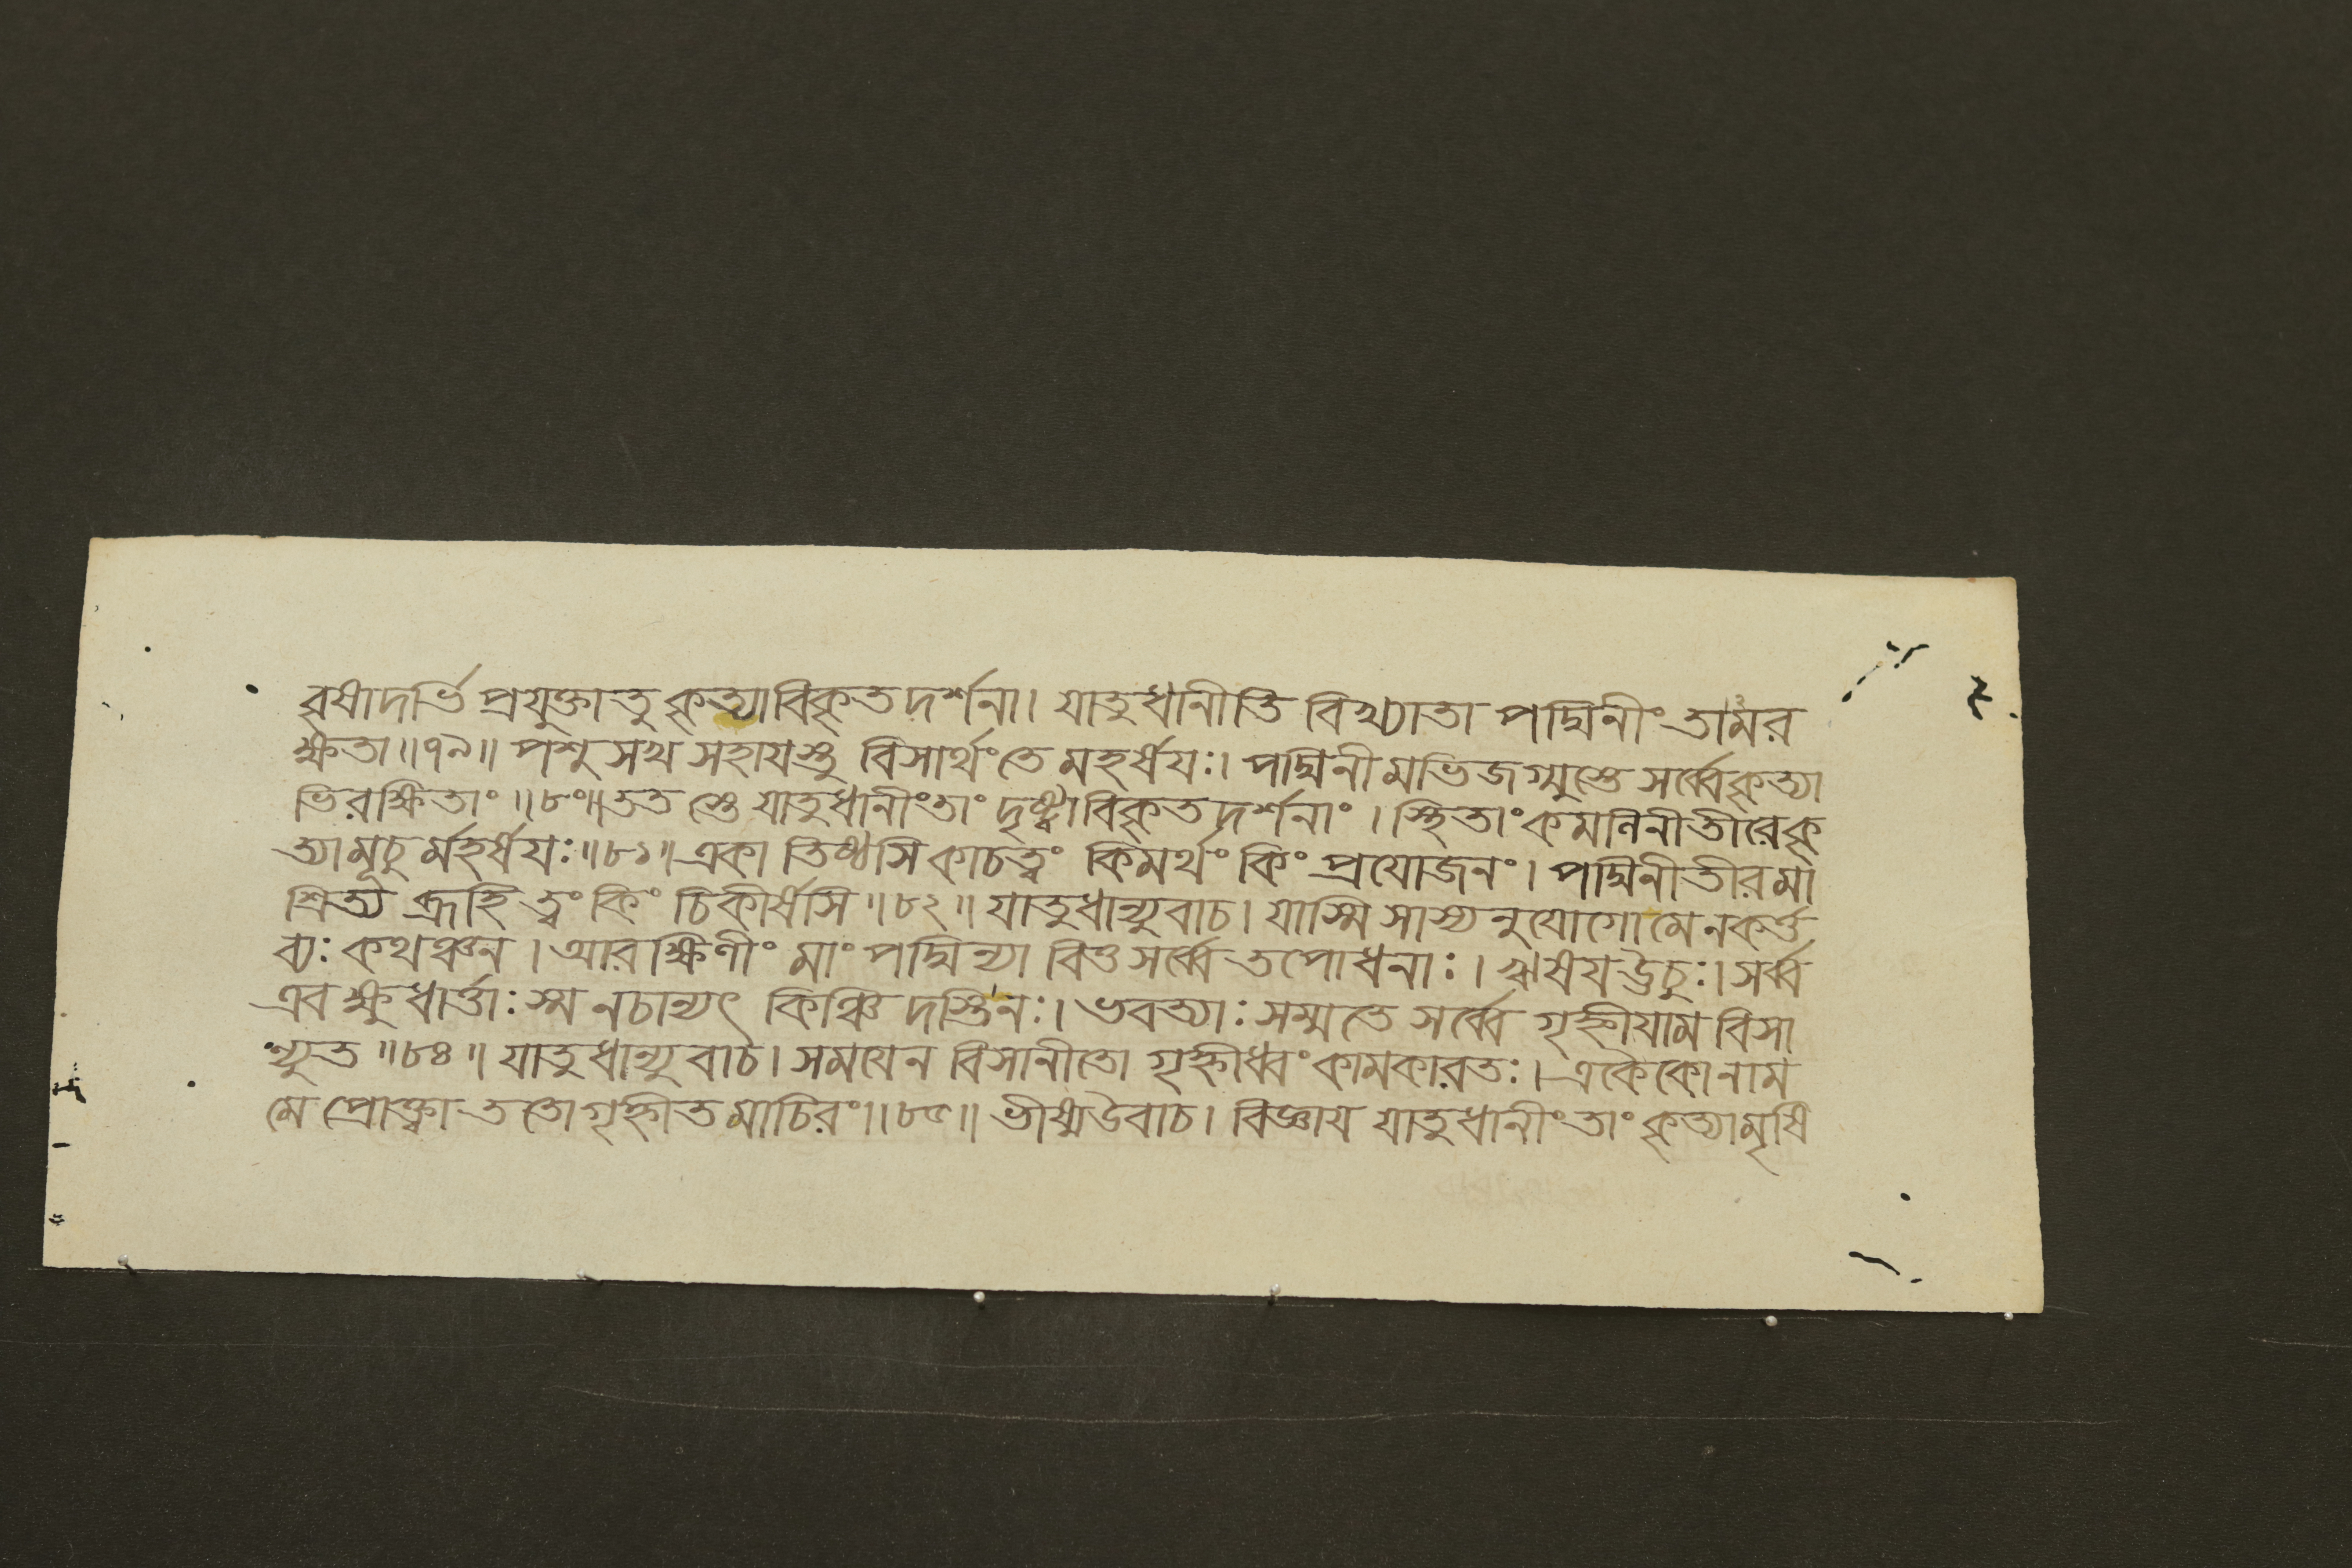 বৃষাদর্ভি প্রযুক্তাতু কৃত্যাবিকৃতদর্শনা। যাতুধানীতি বিখ্যাতা পদ্মিনীং তামর
ক্ষতা॥৭৯॥ পশুসখ সহাযস্তু বিসার্থংতে মহর্ষযঃ। পদ্মিনীমভিজগ্মুস্তে সর্ব্বেকৃত্যা
ভিরক্ষিতাং॥৮০॥ততস্তে যাতুধানীংতাং দৃষ্ট্বাবিকৃতদর্শনাং। স্থিতাংকমলিনীতীরেকৃ
ত্যামূচুর্মহর্ষযঃ॥৮১॥একা তিষ্ঠসি কাচত্বং কিমর্থং কিং প্রযোজনং। পদ্মিনীতীরমা
শ্রিত্য ব্রূহি ত্বং কিং চিকীর্ষসি॥৮২॥ যাতুধান্যুবাচ। যাস্মি সাস্ম্যনুযোগোমেনকর্ত্ত
ব্যঃ কথঞ্চন। আরক্ষিণীং মাং পদ্মিন্যা বিত্ত সর্ব্বে তপোধনাঃ। ঋষযঊচুঃ। সর্ব্ব
এবক্ষুধার্ত্তাঃ স্ম নচান্যৎ কিঞ্চিদস্তিনঃ। ভবত্যাঃ সম্মতে সর্ব্বে গৃহ্নীযাম বিসা
ন্যুত॥৮৪॥ যাতুধান্যুবাচ। সমযেন বিসানীতো গৃহ্নীধ্বং কামকারতঃ। একৈকোনাম
মে প্রোক্ত্বা ততোগৃহ্নীতমাচিরং॥৮৫॥ ভীষ্মউবাচ। বিজ্ঞায যাতুধানীংতাং কৃত্যামৃষি